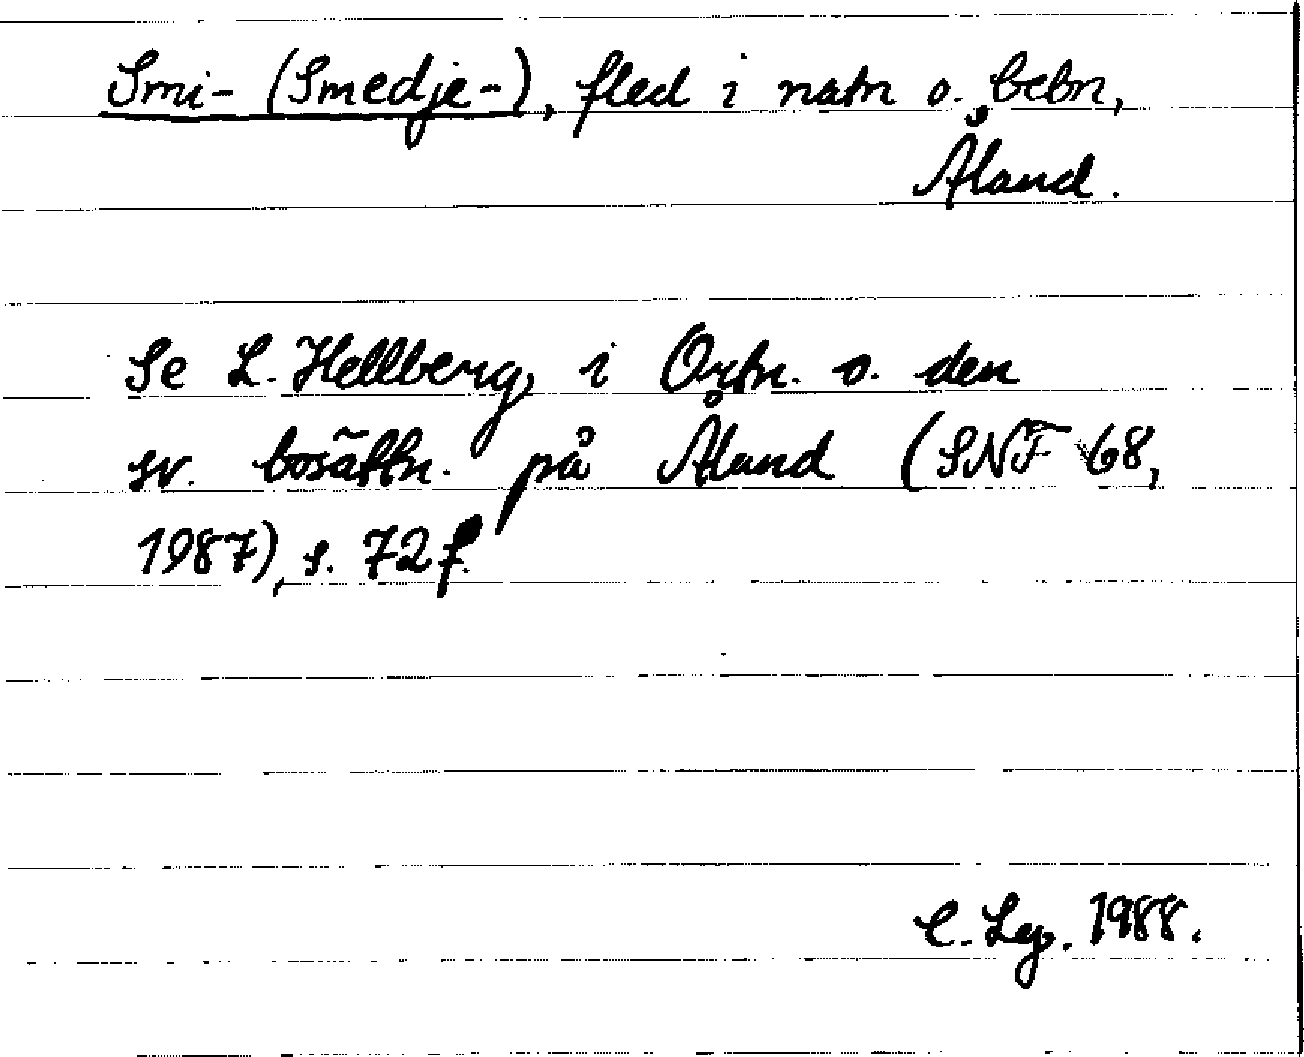 Smi- (Smedje-), fled i natn o. bebn,
Åland.
Se L. Hellberg, i Ortn. o. den
sv. bosättn. på Åland (SNF 68,
1987), s. 72 f.
1988.